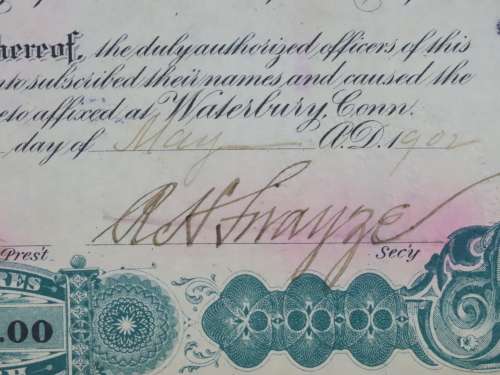 hereof, the duly authorized officers of this
nto subscribed their names and caused the
eto affixed at Waterbury, Conn.
day of May A.D. 1902
A H Swayze
Pres't Sec'y
RES
.00